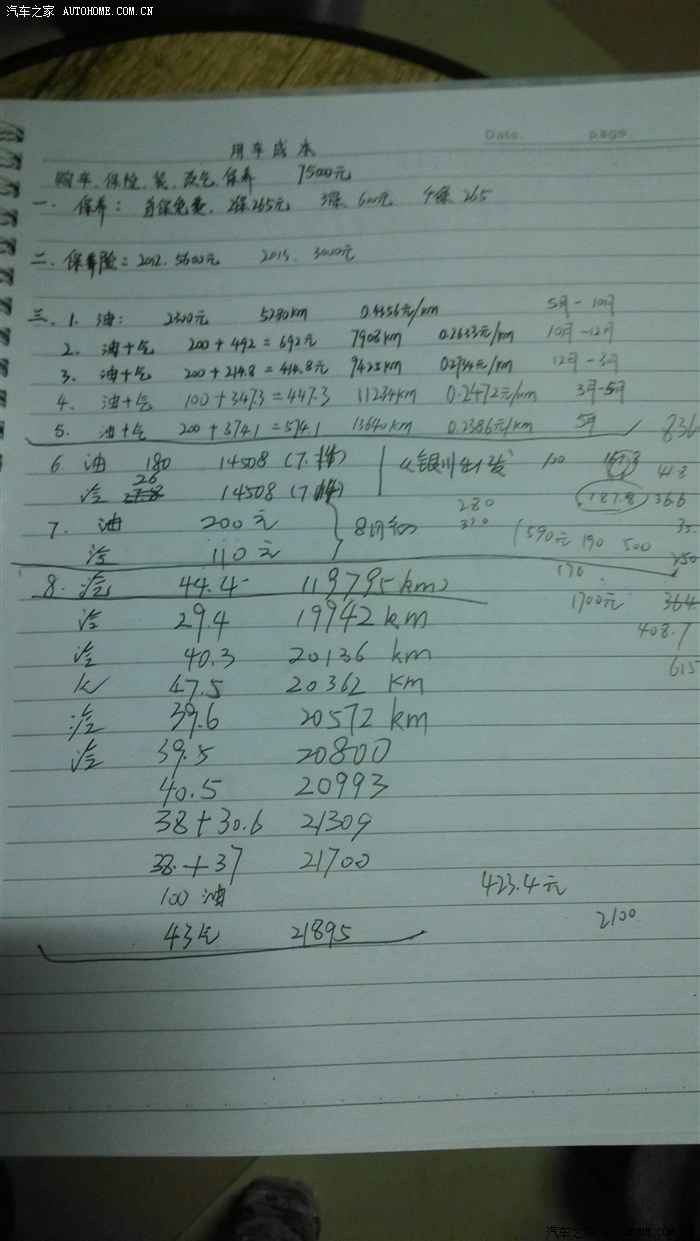 汽车之家 AUTOHOME.COM.CN
Date. page.
用车成本
购车、保险、装、改气、保养 75000元
一、保养: 首保免费、2保265元 3保、600元 4保、265
二、保险: 2012、5600元 2013、3000元
三、1. 油: 2300元 5280km 0.4356元/km 5月-10月
2. 油+气 200+492=692元 7908km 0.2633元/km 10月-12月
3. 油+气 200+214.8=414.8元 9425km 0.2734元/km 12月-3月
4. 油+气 100+347.3=447.3 11234km 0.2472元/km 3月-5月
5. 油+气 200+374.1=574.1 13640km 0.2386元/km 5月 836
6. 油 180 14508 41.8
26
汽 27.8 14508 187.8 36.6
7. 油 200元 280 35.
汽 110元 8月 370 1590元 190 500 250
8. 汽 44.4 119795km 170
汽 29.4 19942km 1700元 364.
汽 40.3 20136 km 408.7
47.5 20362 km 615
汽 39.6 20572 km
汽 39.5 20800
40.5 20993
38+30.6 21309
38+37 21700
100 油 423.4元
43气 21895 2100
汽车之家 AUTOHOME.COM.CN